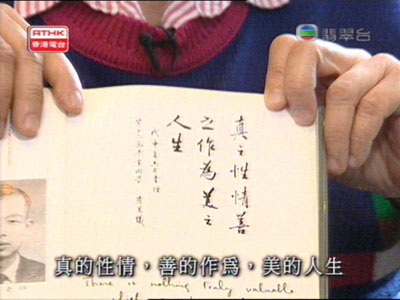 RTHK
香港電台
翡翠台
真之性情善
之作為美之
人生
真的性情，善的作爲，美的人生
There is nothing truly valuable
which